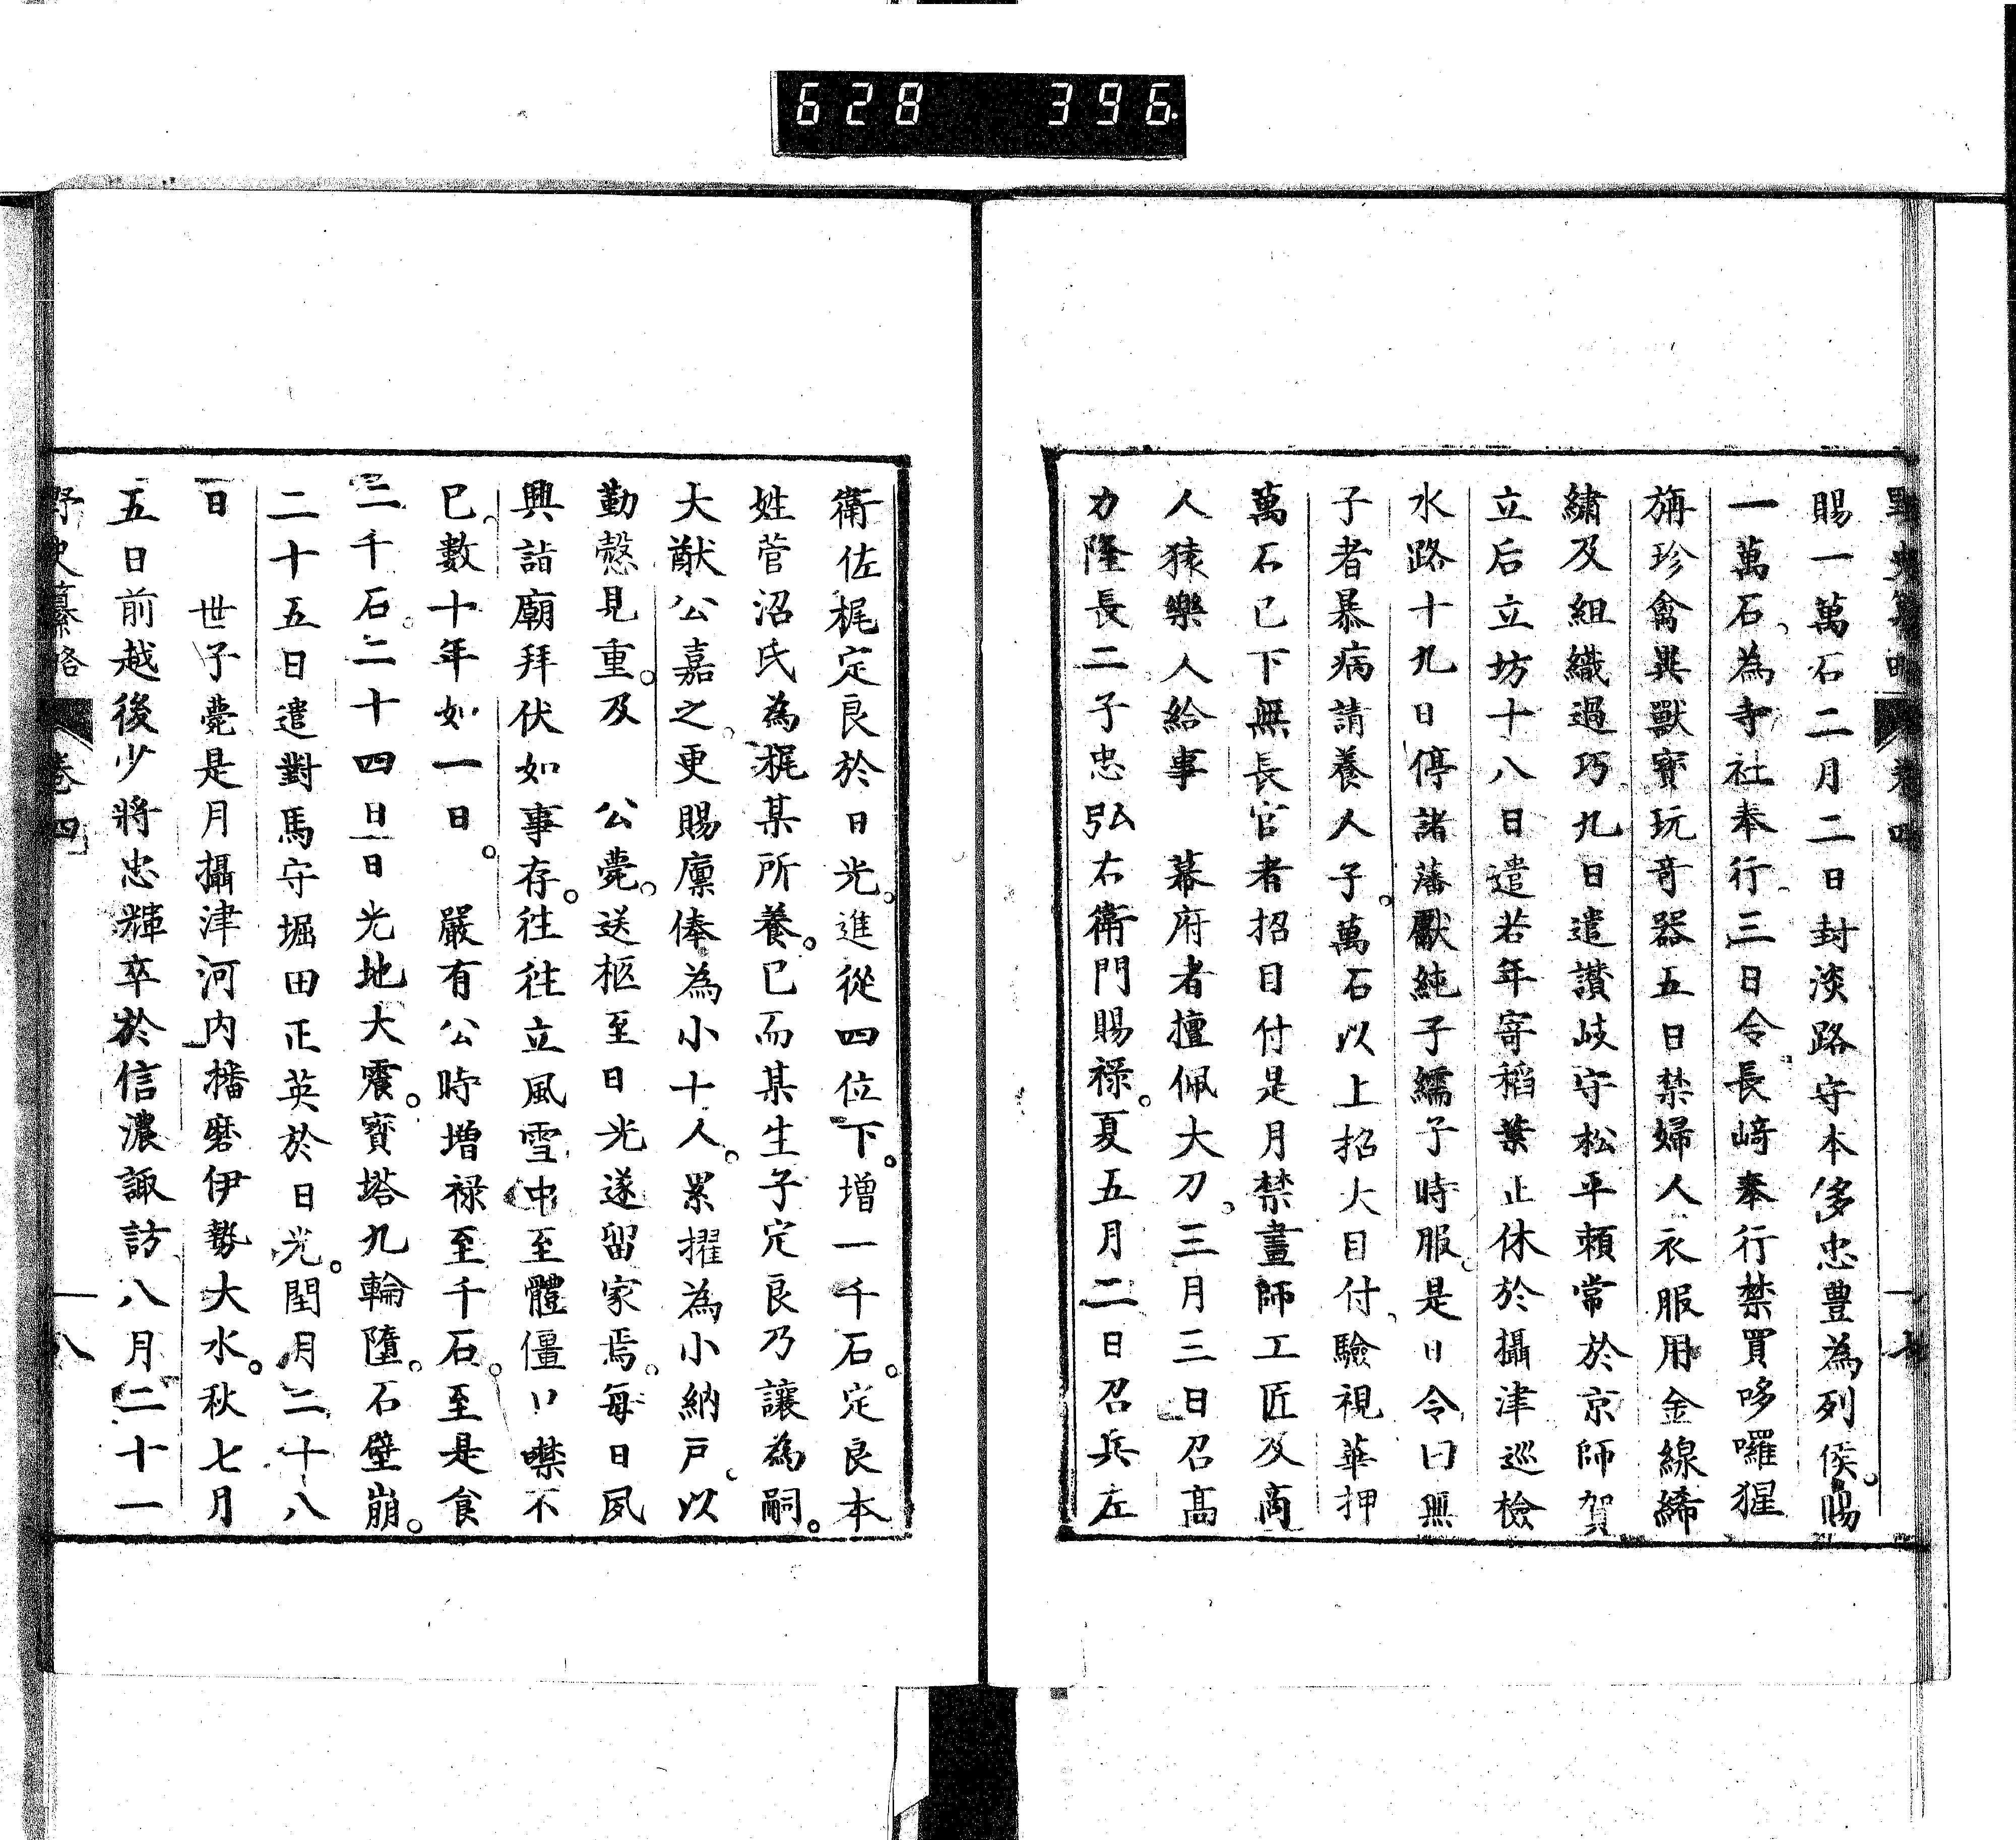 628 396
野史纂略 卷四 十七
賜一萬石二月二日封淡路守本多忠豊為列侯賜
一萬石為寺社奉行三日令長﨑奉行禁買哆囉猩
旃珍禽異獸寳玩竒器五日禁婦人衣服用金線絺
繡及組織過巧九日遣讃岐守松平頼常於京師賀
立后立坊十八日遣若年寄稻葉止休於攝津巡檢
水路十九日停諸藩獻純子繻子時服是日令曰無
子者暴病請養人子萬石以上招大目付驗視華押
萬石已下無長官者招目付是月禁畫師工匠及啇
人猿樂人給事 幕府者擅佩大刀三月三日召高
力隆長二子忠弘右衛門賜禄夏五月二日召兵左
衛佐梶定良於日光進從四位下增一千石定良本
姓菅沼氏為梶某所養已而某生子定良乃讓為嗣
大猷公嘉之更賜廪俸為小十人累擢為小納戸以
勤慤見重及 公薨送柩至日光遂留家焉每日夙
興詣廟拜伏如事存往往立風雪中至體僵口噤不
已數十年如一日 嚴有公時増禄至千石至是食
二千石二十四日日光地大震寳塔九輪墮石壁崩
二十五日遣對馬守堀田正英於日光閏月二十八
日 世子薨是月攝津河内播磨伊勢大水秋七月
五日前越後少將忠輝卒於信濃諏訪八月二十一
野史纂略 卷四 十八